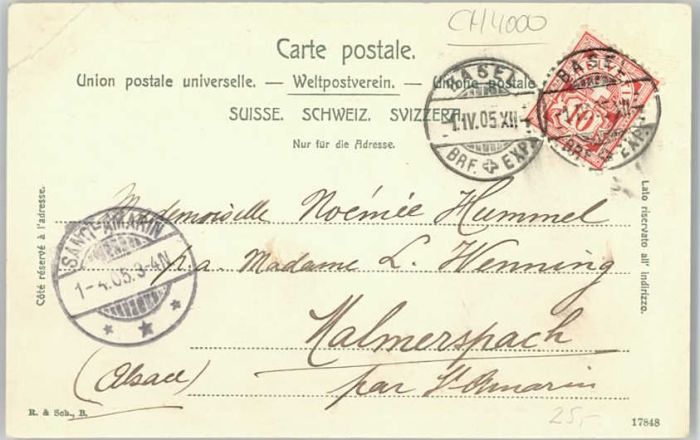 CH4000
Carte postale.
Union postale universelle. — Weltpostverein. — Unione postale
SUISSE. SCHWEIZ. SVIZZERA.
Nur für die Adresse.
BASEL
1.IV.05.XII
BRF. EXP.
BASEL
10
XII
BRF. EXP.
Côté réservé à l'adresse.
Lato riservato all' indirizzo.
Mademoiselle Noémée Hummel
p. a. Madame L. Wenning
Malmerspach
(Alsace) par St Amarin
SANKT-AMARIN
1-4.05.3-4N
R. & Sch., B.
25,-
17848